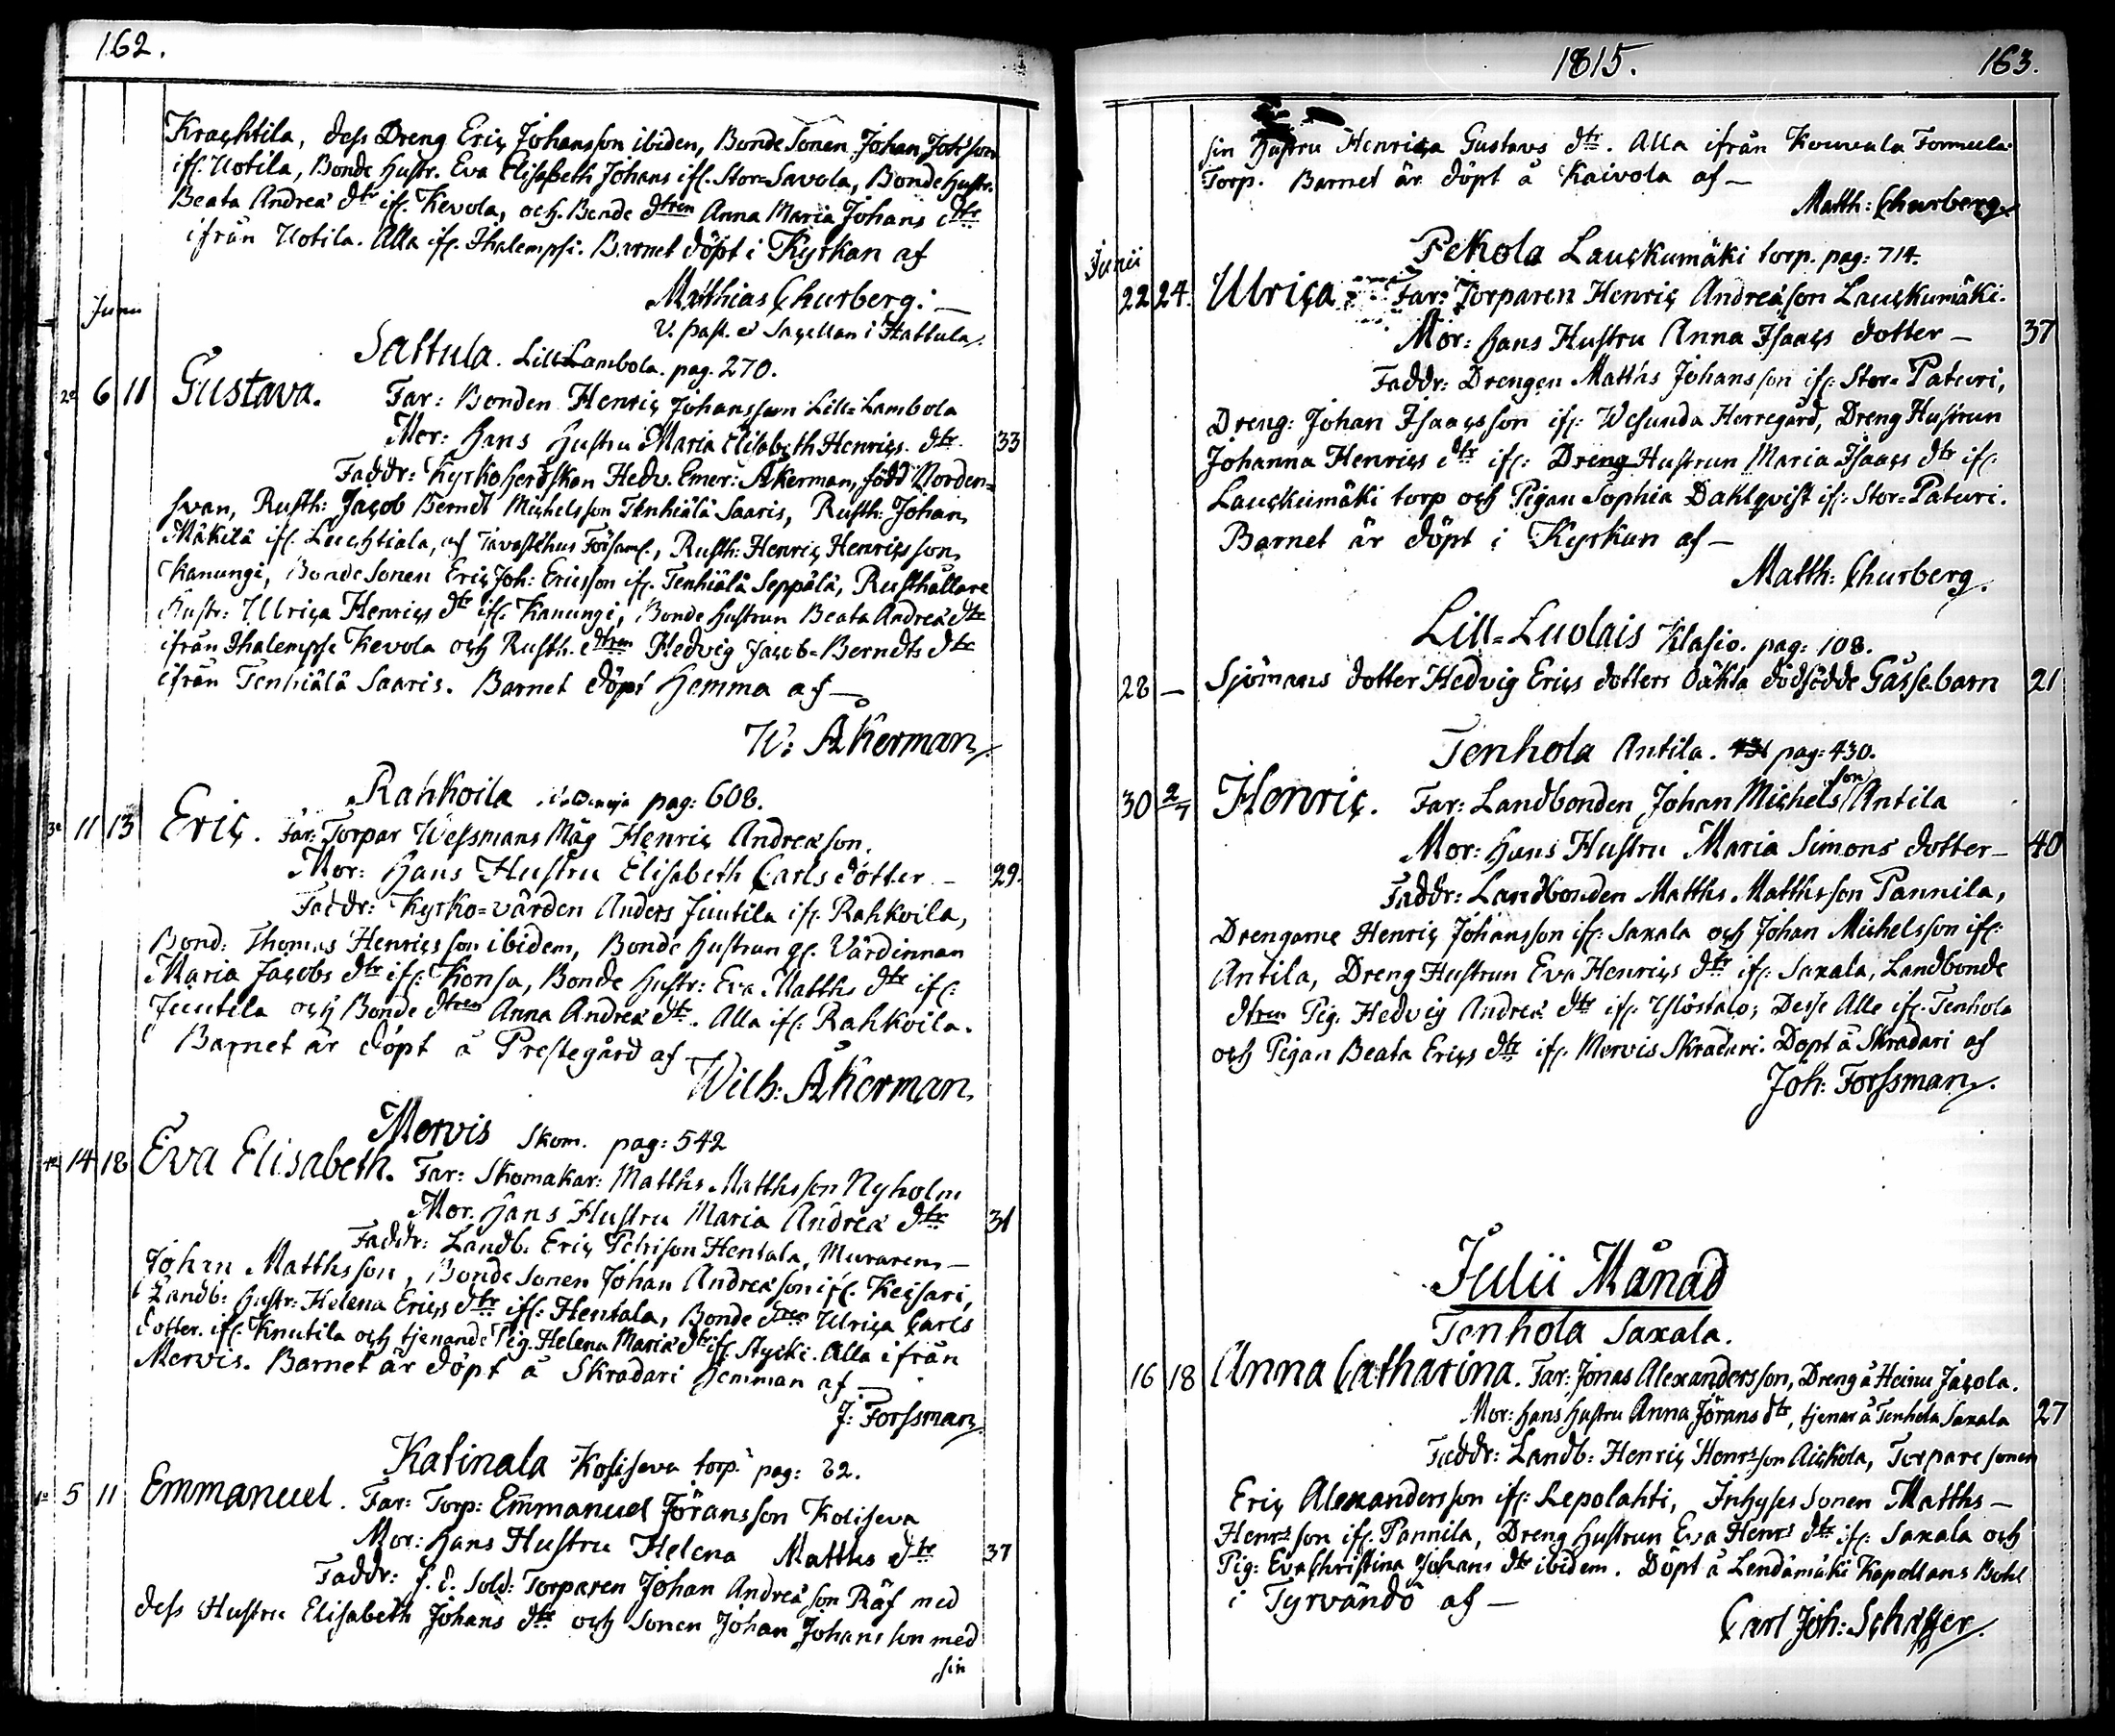 162.
Krachtila, dess Dreng Eric Johansson ibiden, Bonde Sonen Johan Joh:son
ifr. Uotila, Bonde Hustr. Eva Elisabeth Johans ifr. Stor=Savola, Bonde Hustr.
Beata Andreæ dtr ifr. Kevola, och Bonde dtren Anna Maria Johans dtr
ifrån Uotila. Alla ifr. Ihalempsi. Barnet döpt i Kyrkan af
Mathias Churberg:—
V. past. et Sacellan i Hattula.
Junii
Sattula. Lill Lambola. pag. 270.
6 11 Gustava. Far: Bonden Henric Johansson Lill=Lambola
Mor: Hans Hustru Maria Elisabeth Henrics dtr. 33
Faddr: Kyrkoherdskan Hedv. Emer: Åkerman, född Norden=
svan, Rusth: Jacob Berndt Michelsson Tenhiälä Saaris, Rusth: Johan
Mäkilä ifr. Luchtiala, af Tavastehus Församl., Rusth: Henric Henricsson
Kanungi, Bonde Sonen Eric Joh: Ericsson ifr. Tenhiälä Seppälä, Rusthållare
Hustr: Ulrica Henrics dtr ifr. Kanungi, Bonde Hustrun Beata Andreæ dtr
ifrån Ihalempse Kevola och Rusth. dtren Hedvig Jacob=Berndts dtr
ifrån Tenhiälä Saaris. Barnet döpt Hemma af—
W: Åkerman.
Rahkoila pag: 608.
11 13 Eric. Far: Torpar Wessmans Måg Henric Andreæson.
Mor: Hans Hustru Elisabeth Carls dotter.— 29.
Faddr: Kyrko=värden Anders Juutila ifr. Rahkoila,
Bond: Thomas Henricsson ibidem, Bonde Hustrun gl. Värdinnan
Maria Jacobs dtr ifr: Konsa, Bonde Hustr: Eva Matths dtr ifr:
Juutila och Bonde dtren Anna Andreæ dtr. Alla ifr: Rahkoila.
Barnet är döpt å Prestegård af
Wilh: Åkerman.
Mervis Skom. pag: 542
14 18 Eva Elisabeth. Far: Skomakar: Matths Matthsson Nyholm
Mor. Hans Hustru Maria Andreæ dtr 31
Faddr: Landb. Eric Petrison Hentala, Muraren—
Johan Matthsson, Bonde Sonen Johan Andreæson ifr. Keisari,
Landb: Hustr: Helena Erics dtr ifr: Hentala, Bonde dtren Ulrica Carls
dotter. ifr: Knutila och tjenande Pig. Helena Mariæ dtr ifr. Stycki. Alla ifrån
Mervis. Barnet är döpt å Skradari Hemman af—
J: Forssman.
Katinala Kosiseva torp. pag: 82.
5 11 Emmanuel. Far: Torp: Emmanuel Jöransson Kosiseva
Mor: Hans Hustru Helena Matths dtr 37
Faddr: f. d. Sold: Torparen Johan Andreæson Räf med
dess Hustru Elisabeth Johans dtr och Sonen Johan Johansson med
sin
1815. 163.
sin Hustru Henrica Gustavs dtr. Alla ifrån Kouvala
Torp. Barnet är döpt å Kaivola af—
Matth: Churberg.
Junii
Pekola Lauckumäki torp. pag: 714.
22 24. Ulrica Far: Torparen Henric Andreæson Lauckumäki.
Mor: Hans Hustru Anna Isaacs dotter— 37
Faddr: Drengen Matths Johansson ifr: Stor=Paturi,
Dreng: Johan Isaacsson ifr: Wesunda Herregård, Dreng Hustrun
Johanna Henrics dtr ifr: Dreng Hustrun Maria Isaacs dtr ifr.
Lauckumäki torp och Pigan Sophia Dahlqvist ifr: Stor=Paturi.
Barnet är döpt i Kyrkan af—
Matth: Churberg.
Lill=Luolais Klasio. pag: 108.
28 — Sjömans dotter Hedvig Erics dotters oäkta dödfödde Gåssebarn 21
Tenhola Antila. pag: 430.
30 2/7 Henric. Far: Landbonden Johan Michelsson Antila
Mor: Hans Hustru Maria Simons dotter— 40
Faddr: Landbonden Matths Matthsson Pannila,
Drengarne Henric Johansson ifr: Saxala och Johan Michelsson ifr:
Antila, Dreng Hustrun Eva Henrics dtr ifr: Saxala, Landbonde
dtren Pig. Hedvig Andreæ dtr ifr: Ylöstalo; Desse Alle ifr. Tenhola
och Pigan Beata Erics dtr ifr: Mervis Skradari. Döpt å Skradari af
Joh: Forssman.
Julii Månad
Tenhola Saxala.
16 18 Anna Catharina. Far: Jonas Alexandersson, Dreng å Heinu Jacola.
Mor: Hans Hustru Anna Jörans dtr, tjenar å Tenhola Saxala 27
Faddr: Landb: Henric Henrsson Aickola, Torpare sonen
Eric Alexandersson ifr: Lepolahti, Inhyses Sonen Matths—
Henrsson ifr: Pannila, Dreng Hustrun Eva Henrs dtr ifr: Saxala och
Pig: Eva Christina Johans dtr ibidem. Döpt å Lendämäki Kapellans Bohl
i Tyrvändö af—
Carl Joh: Schæffer.